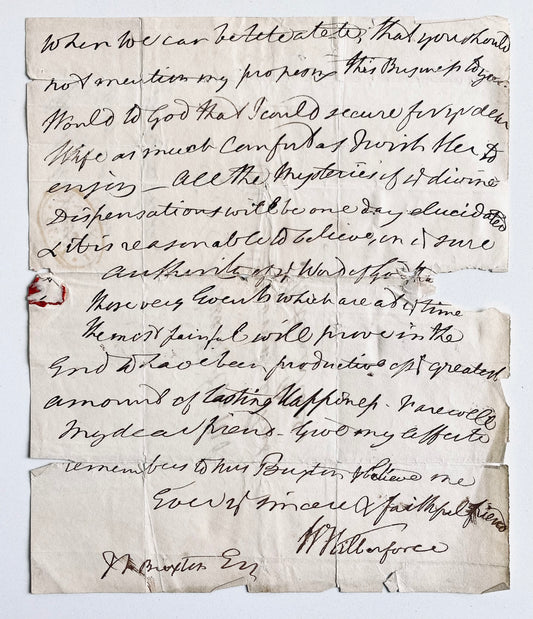 when we can be tete a tete, that you should
not mention my proposing this Business to you.
Would to God that I could secure for yr dear
Wife as much Comfort as I wish Her to
enjoy - All the Mysteries of ye divine
Dispensations will be one day elucidated
& it is reasonable to believe, on ye sure
authority of ye Word of God, tha
those very Events which are at ye time
the most painful will prove in the
End to have been productive of ye greatest
amount of lasting Happiness. Farewell
My dear friend. Give my affecte
remembces to Mrs Buxton & believe me
Ever yr sincere & faithful friend
W Wilberforce
Buxton Esq